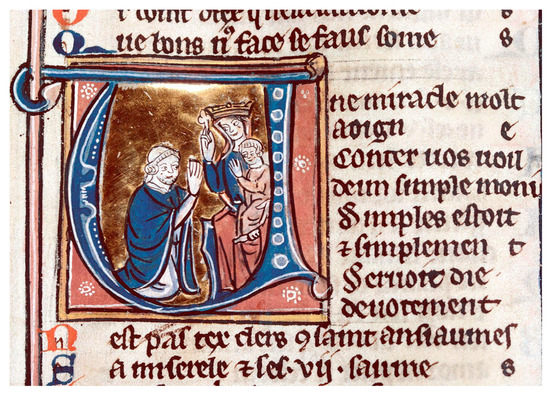 Que bons n̄ face se faus some s
Une miracle molt
aoign e
Conter uos uoil
deun simple moni
Simples estoit
⁊ simplemen t
Seruoit die
deuotement
Nest pas tex clers ꝯ saint ansiaumes
Sa miserele ⁊ ses· vij · saume s